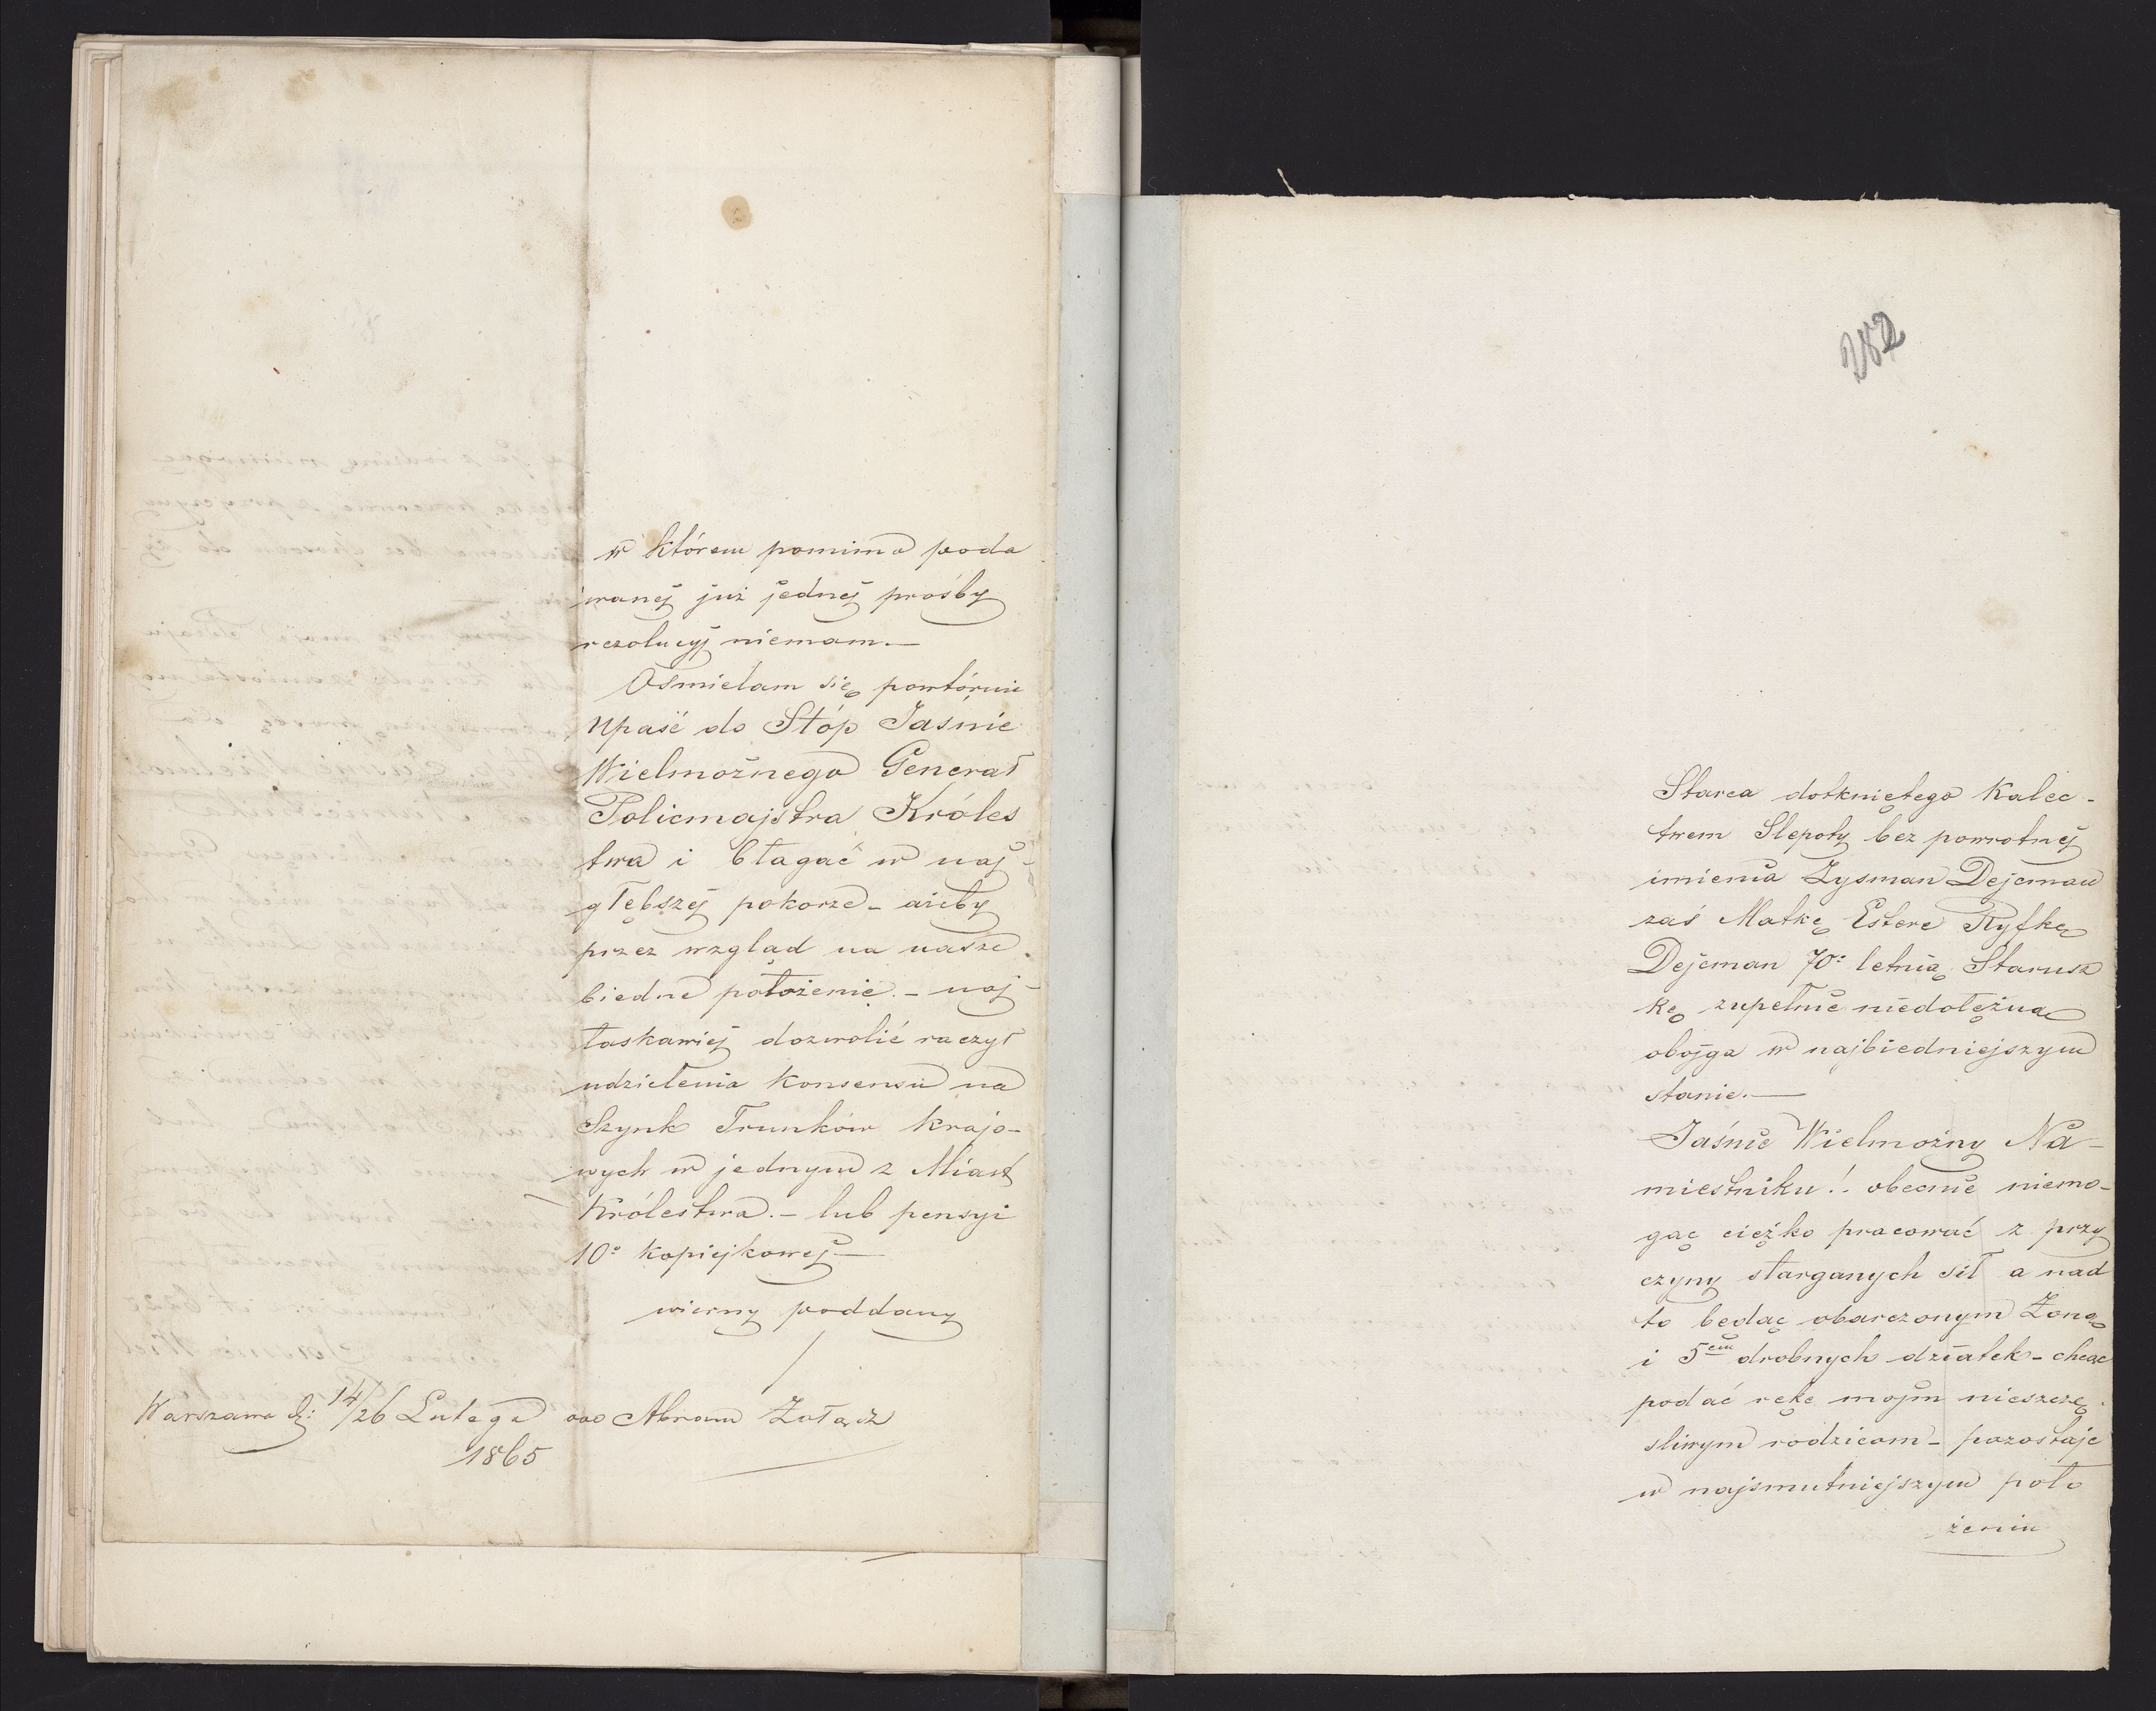 w którem pomimo poda
wanej już jednej prośby
rezolucyj niemam.—
Ośmielam się powtórnie
upaść do Stóp Jaśnie
Wielmożnego Generał
Policmajstra Króles
twa i błagać w naj-
głębszej pokorze - ażeby
przez wzgląd na nasze
biedne położenie. - naj-
łaskawiej dozwolić raczył
udzielenia konsensu na
Szynk Trunków krajo-
wych w jednym z Miast
Królestwa. - lub pensyi
10: kopiejkowej—
wierny poddany
Warszawa d: 14/26 Lutego ooo Abram Żołądz
1865
282
Starca dotkniętego Kalec-
twem Slepoty bez powrotnej
imienia Zysman Dejcman
zaś Matkę Esterę Ryfkę
Dejcman 70: letnią Starusz
kę zupełnie niedołężną
obojga w najbiedniejszym
stanie.—
Jaśnie Wielmożny Na-
miestniku!. obecnie niemo-
gąc ciężko pracować z przy
czyny starganych sił a nad
to będąc obarczonym Żoną
i 5em drobnych dziatek - chcąc
podać rękę mojm nieszczę
sliwym rodzicom - pozostaje
w najsmutniejszym poło
żeniu